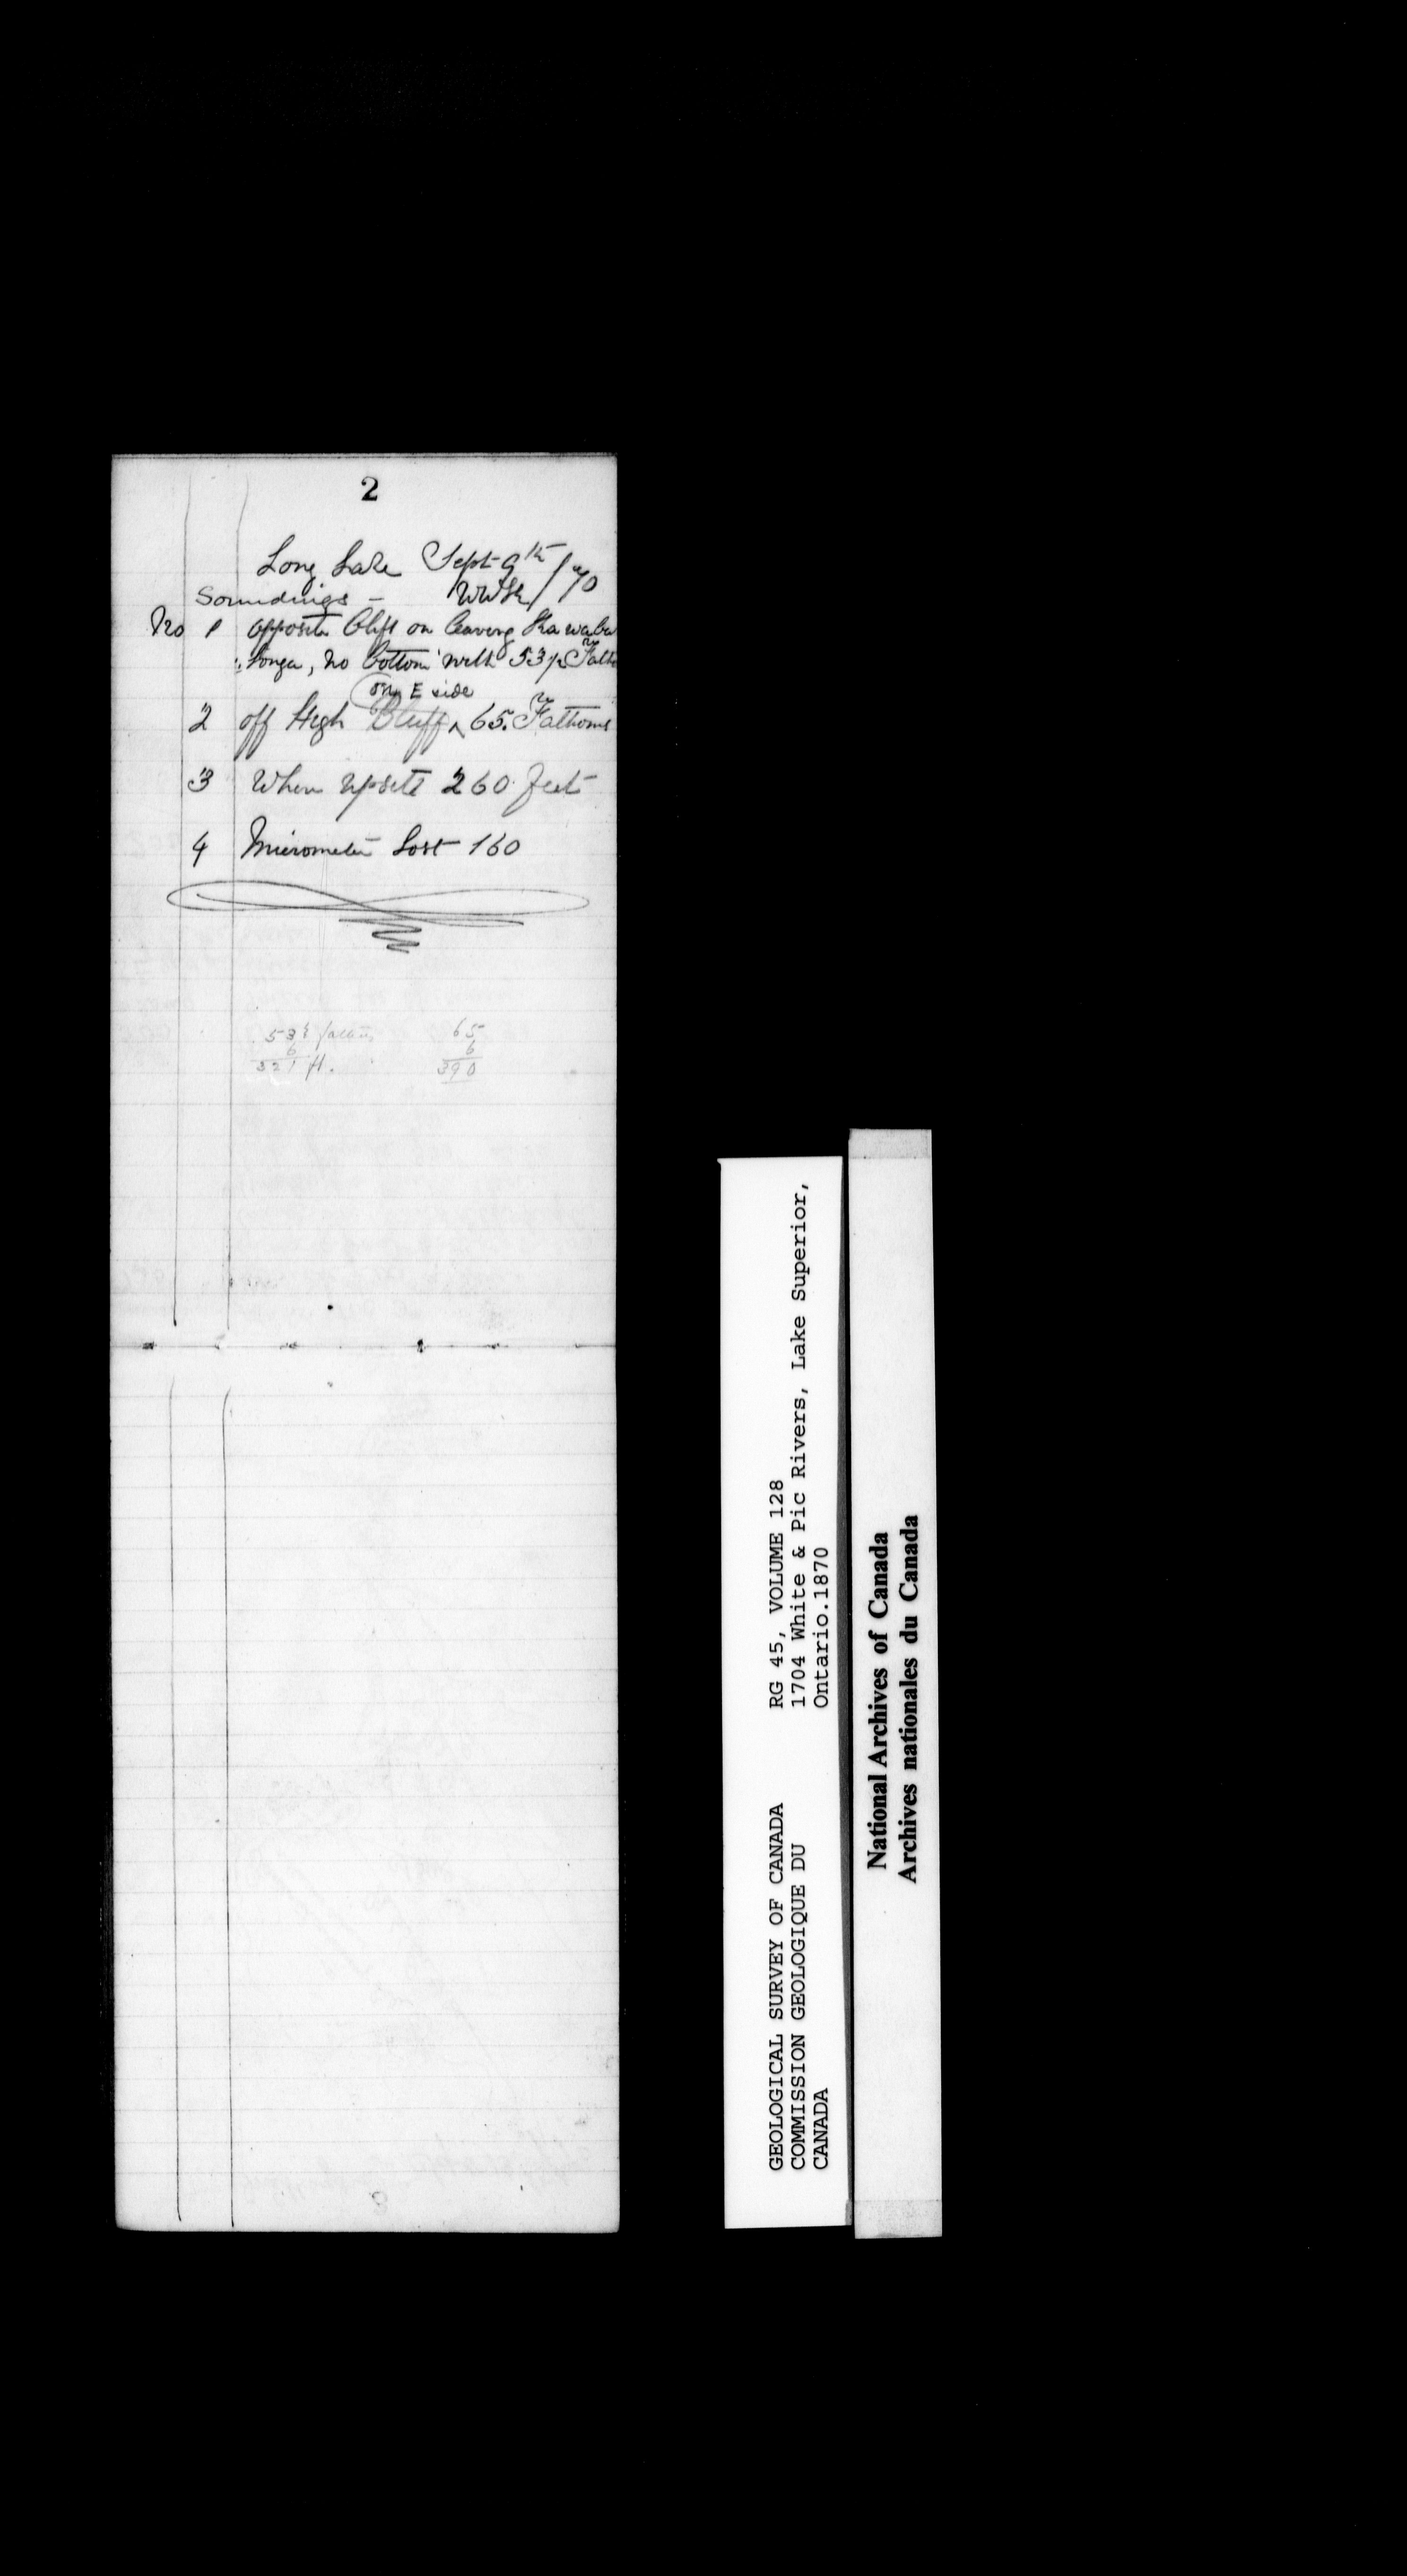 2
Long Lake Sept 9th /70
Soundings -
No 1 opposite Cliff on leaving Kawaba
no bottom with 53½ Fath
on E side
2 off High Bluff ^ 65. Fathoms
3 When upsett 260 feet
4 Micrometer Lost 160
53½ 65
6 6
321 ft. 390
GEOLOGICAL SURVEY OF CANADA
COMMISSION GEOLOGIQUE DU
CANADA
RG 45, VOLUME 128
1704 White & Pic Rivers, Lake Superior,
Ontario.1870
National Archives of Canada
Archives nationales du Canada